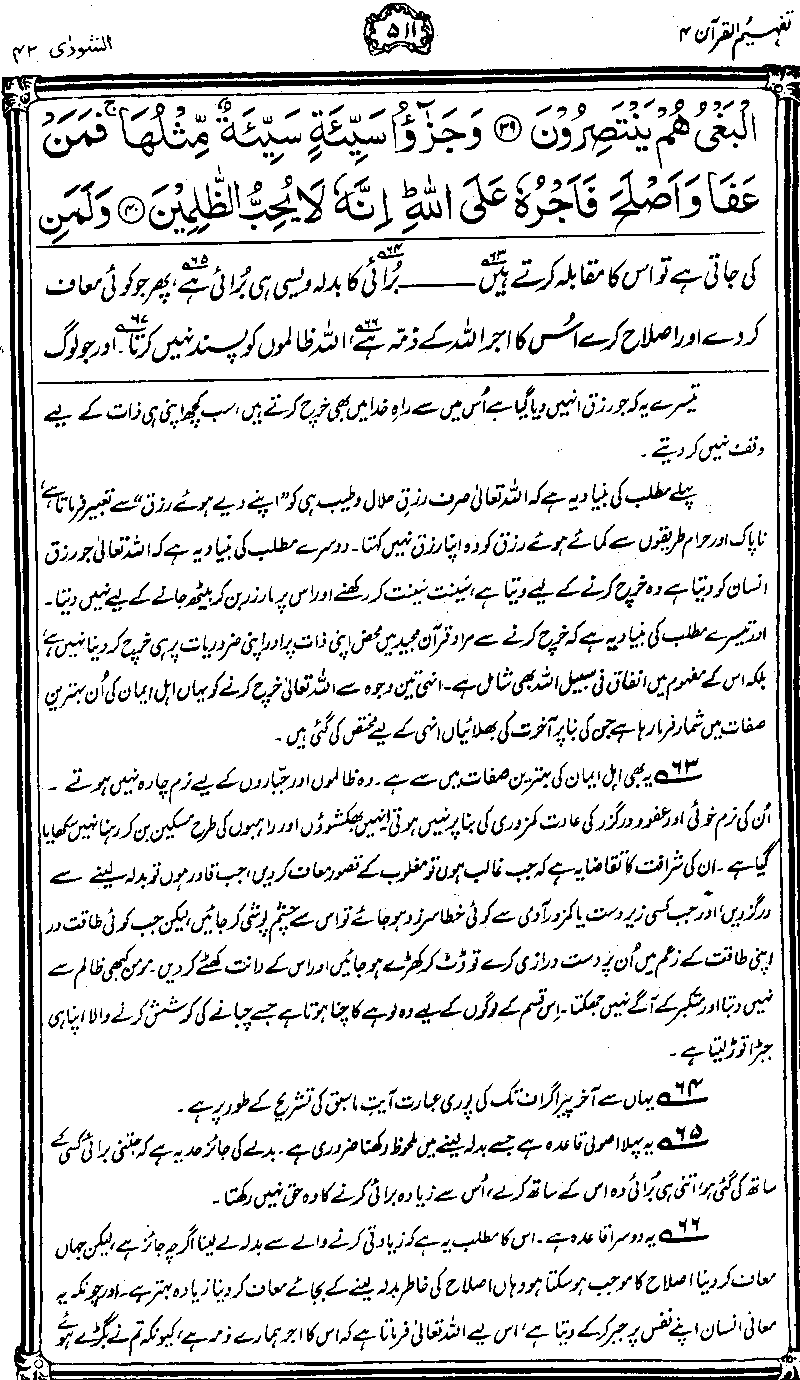 تفہیم القرآن ۴
۵۱۱
الشورٰی ۴۲
الْبَغْیُ هُمْ یَنْتَصِرُوْنَ ﴿۳۹﴾ وَجَزٰٓؤُا سَیِّئَةٍ سَیِّئَةٌ مِّثْلُهَا ۚ فَمَنْ
عَفَا وَاَصْلَحَ فَاَجْرُهٗ عَلَی اللّٰهِ ؕ اِنَّهٗ لَا یُحِبُّ الظّٰلِمِیْنَ ﴿۴۰﴾ وَلَمَنِ
کی جاتی ہے تو اس کا مقابلہ کرتے ہیں ۶۳ ــــــ بُرائی ۶۴ کا بدلہ ویسی ہی بُرائی ہے ۶۵، پھر جو کوئی معاف
کر دے اور اصلاح کرے اُس کا اجر اللہ کے ذمّہ ہے ۶۶، اللہ ظالموں کو پسند نہیں کرتا ۶۷۔ اور جو لوگ
تیسرے یہ کہ جو رزق انہیں دیا گیا ہے اُس میں سے راہِ خدا میں بھی خرچ کرتے ہیں، سب کچھ اپنی ہی ذات کے لیے
وقف نہیں کر دیتے ۔
پہلے مطلب کی بنیاد یہ ہے کہ اللہ تعالیٰ صرف رزقِ حلال و طیب ہی کو ”اپنے دیے ہوئے رزق“ سے تعبیر فرماتا ہے،
ناپاک اور حرام طریقوں سے کمائے ہوئے رزق کو وہ اپنا رزق نہیں کہتا ۔ دوسرے مطلب کی بنیاد یہ ہے کہ اللہ تعالیٰ جو رزق
انسان کو دیتا ہے وہ خرچ کرنے کے لیے دیتا ہے، سَینت سَینت کر رکھنے اور اس پر مارِ زر بن کر بیٹھ جانے کے لیے نہیں دیتا ۔
اور تیسرے مطلب کی بنیاد یہ ہے کہ خرچ کرنے سے مراد قرآن مجید میں محض اپنی ذات پر اور اپنی ضروریات پر ہی خرچ کر دینا نہیں ہے،
بلکہ اس کے مفہوم میں انفاق فی سبیل اللہ بھی شامل ہے ۔ انہی تین وجوہ سے اللہ تعالیٰ خرچ کرنے کو یہاں اہل ایمان کی اُن بہترین
صفات میں شمار فرما رہا ہے جن کی بنا پر آخرت کی بھلائیاں انہی کے لیے مختص کی گئی ہیں ۔
۶۳ یہ بھی اہل ایمان کی بہترین صفات میں سے ہے ۔ وہ ظالموں اور جبّاروں کے لیے نرم چارہ نہیں ہوتے ۔
اُن کی نرم خوئی اور عفو و درگزر کی عادت کمزوری کی بنا پر نہیں ہوتی انہیں بھکشوؤں اور راہبوں کی طرح مسکین بن کر رہنا نہیں سکھایا
گیا ہے ۔ ان کی شرافت کا تقاضا یہ ہے کہ جب غالب ہوں تو مغلوب کے قصور معاف کر دیں، جب قادر ہوں تو بدلہ لینے سے
درگزریں، اور جب کسی زیردست یا کمزور آدمی سے کوئی خطا سرزد ہو جائے تو اس سے چشم پوشی کر جائیں، لیکن جب کوئی طاقت ور
اپنی طاقت کے زعم میں اُن پر دست درازی کرے تو ڈٹ کر کھڑے ہو جائیں اور اس کے دانت کھٹّے کر دیں ۔ مومن کبھی ظالم سے
نہیں دبتا اور متکبر کے آگے نہیں جھکتا ۔ اِس قسم کے لوگوں کے لیے وہ لوہے کا چنا ہوتا ہے جسے چبانے کی کوشش کرنے والا اپنا ہی
جبڑا توڑ لیتا ہے ۔
۶۴ یہاں سے آخر پیراگراف تک کی پوری عبارت آیتِ ماسبق کی تشریح کے طور پر ہے ۔
۶۵ یہ پہلا اصولی قاعدہ ہے جسے بدلہ لینے میں ملحوظ رکھنا ضروری ہے ۔ بدلے کی جائز حد یہ ہے کہ جتنی برائی کسی کے
ساتھ کی گئی ہو، اتنی ہی بُرائی وہ اس کے ساتھ کرلے، اُس سے زیادہ برائی کرنے کا وہ حق نہیں رکھتا ۔
۶۶ یہ دوسرا قاعدہ ہے ۔ اس کا مطلب یہ ہے کہ زیادتی کرنے والے سے بدلہ لے لینا اگرچہ جائز ہے، لیکن جہاں
معاف کر دینا اصلاح کا موجب ہو سکتا ہو وہاں اصلاح کی خاطر بدلہ لینے کے بجائے معاف کر دینا زیادہ بہتر ہے ۔ اور چونکہ یہ
معافی انسان اپنے نفس پر جبر کر کے دیتا ہے، اس لیے اللہ تعالیٰ فرماتا ہے کہ اس کا اجر ہمارے ذمہ ہے، کیونکہ تم نے بگڑے ہوئے